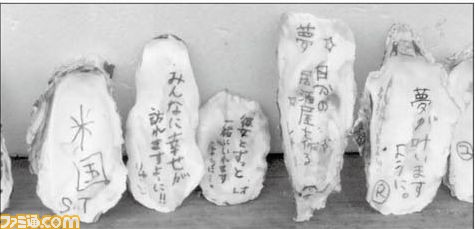 米
国
S.T
みんなに幸せが
訪れますように!!
彼女とずっと
一緒にいれます
夢
自分の
居酒屋を振る
夢が叶います
ように。
ファミ通.com